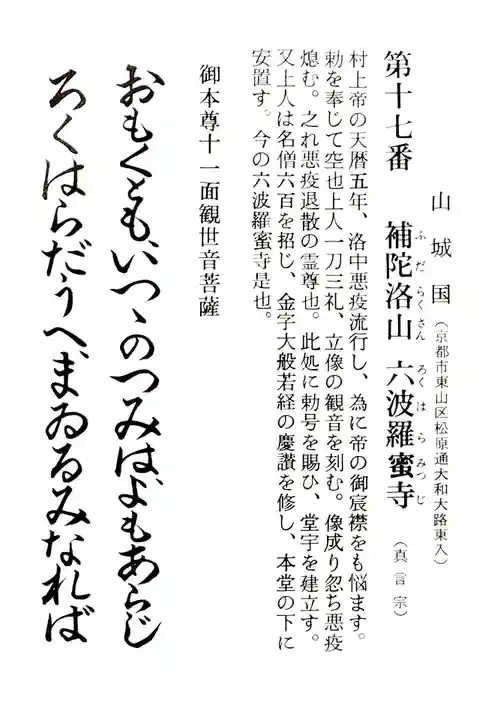 山城国（京都市東山区松原通大和大路東入）
第十七番　補陀洛山　六波羅蜜寺（真言宗）
ふだらくさん　ろくはらみつじ
村上帝の天暦五年、洛中悪疫流行し、為に帝の御宸襟をも悩ます。
勅を奉じて空也上人一刀三礼、立像の観音を刻む。像成り忽ち悪疫
熄む。之れ悪疫退散の霊尊也。此処に勅号を賜ひ、堂宇を建立す。
又上人は名僧六百を招じ、金字大般若経の慶讃を修し、本堂の下に
安置す。今の六波羅蜜寺是也。
御本尊十一面観世音菩薩
おもくとも、いつゝのつみは、よもあらじ
ろくはらだうへ、まゐるみなれば